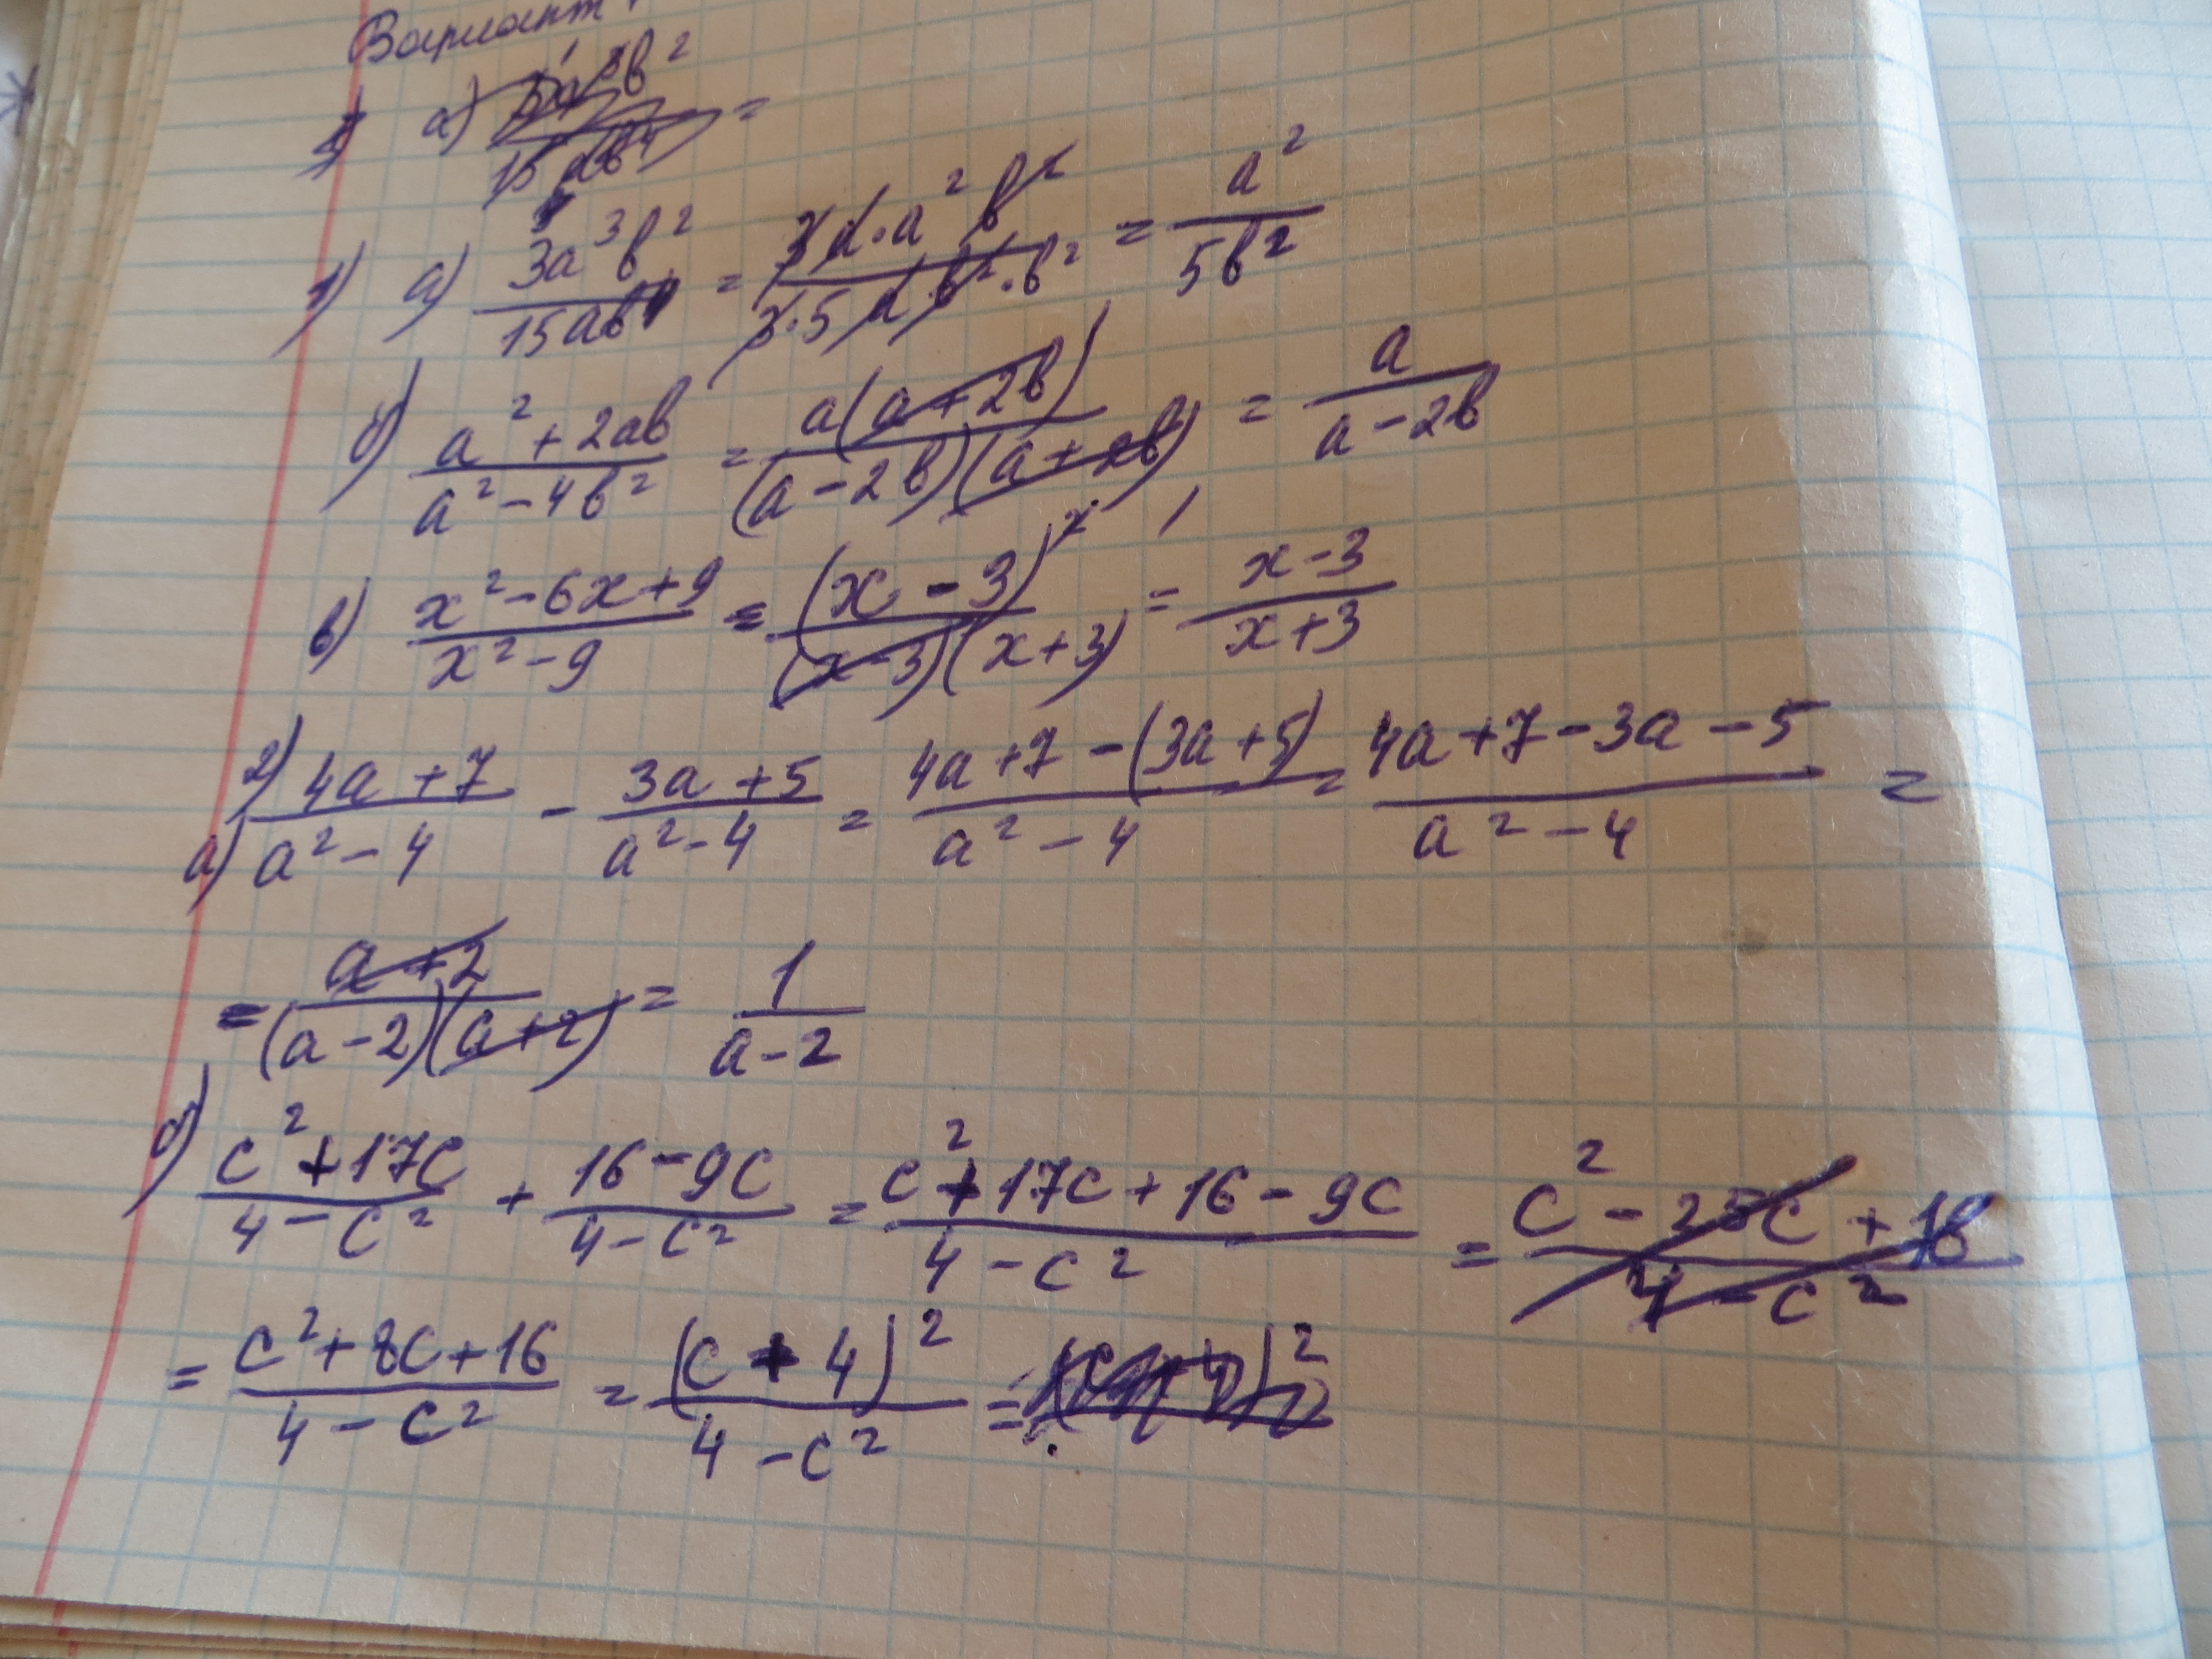 Вариант
а) =
1) а) 3a³b²/15ab⁴ = 3a·a²b²/3·5a·b²·b² = a²/5b²
б) a²+2ab/a²-4b² = a(a+2b)/(a-2b)(a+2b) = a/a-2b
в) x²-6x+9/x²-9 = (x-3)²/(x-3)(x+3) = x-3/x+3
2) а) 4a+7/a²-4 - 3a+5/a²-4 = 4a+7-(3a+5)/a²-4 = 4a+7-3a-5/a²-4 =
= a+2/(a-2)(a+2) = 1/a-2
б) c²+17c/4-c² + 16-9c/4-c² = c²+17c+16-9c/4-c² = c²-25c+16/4-c²
= c²+8c+16/4-c² = (c+4)²/4-c² =